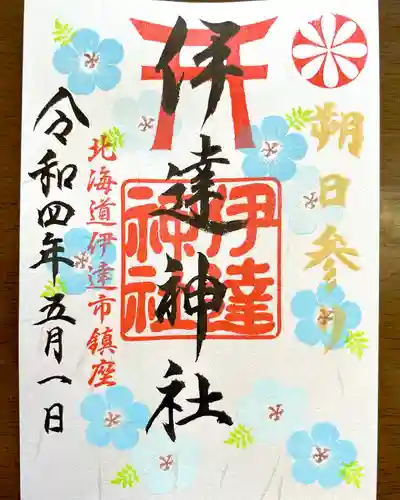 朔日参り
伊達神社
伊達
神社
北海道伊達市鎮座
令和四年五月一日